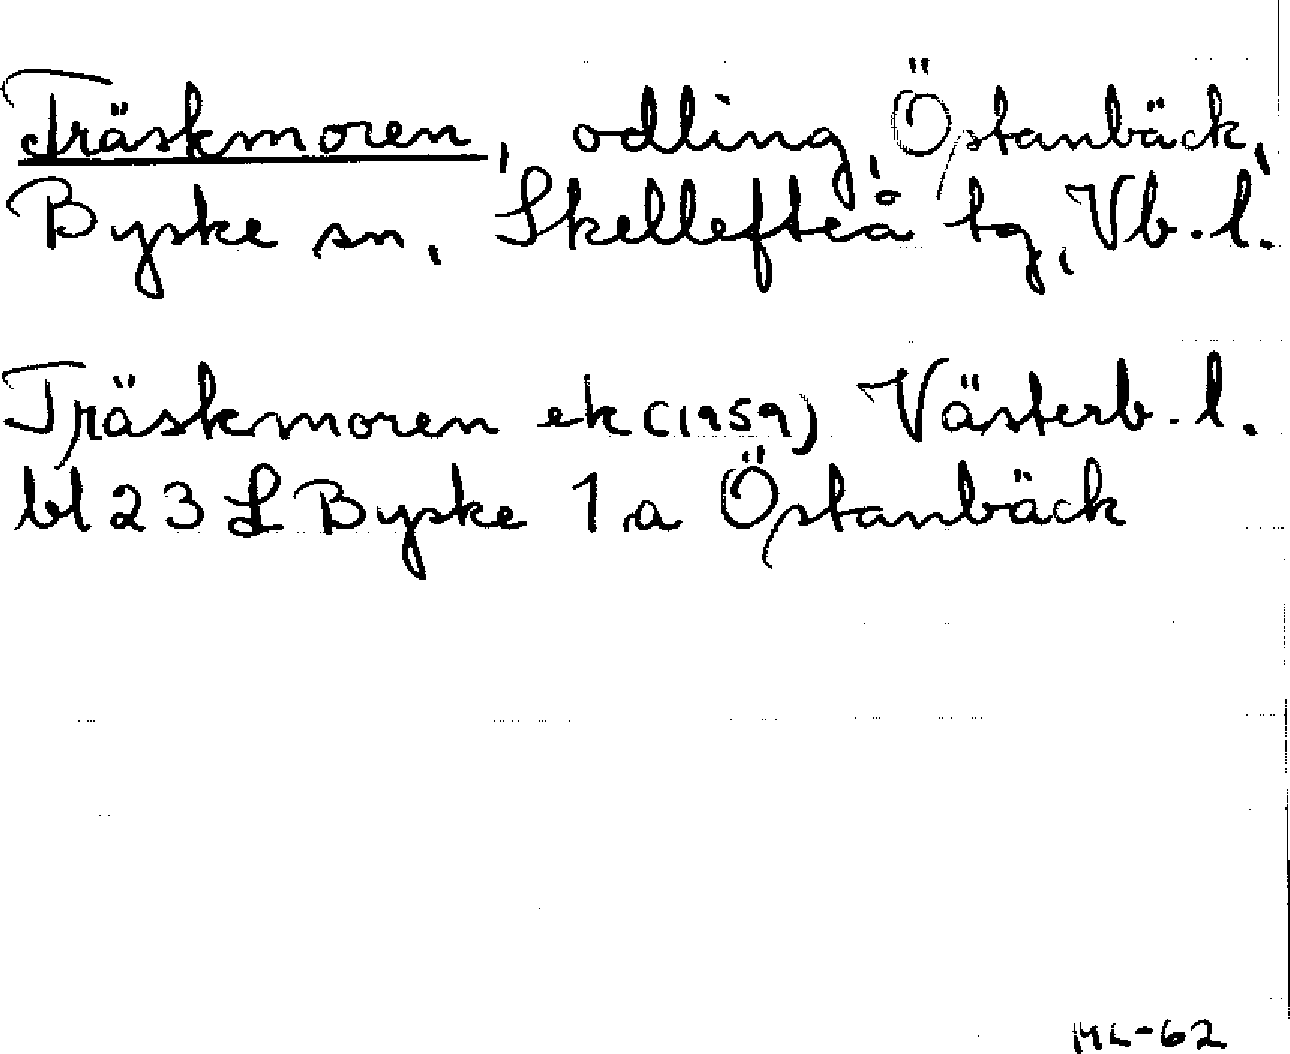 Träskmoren, odling, Östanbäck,
Byske sn, Skellefteå tg, Vb.l.
Träskmoren ek (1959) Västerb.l.
bl 23 L Byske 1a Östanbäck
ML-62